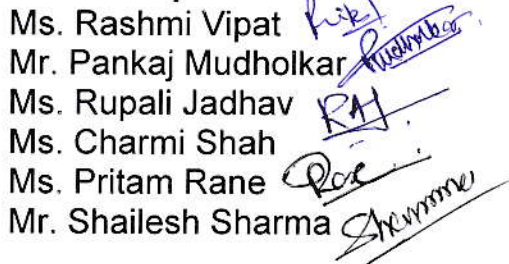 Ms. Rashmi Vipat
Mr. Pankaj Mudholkar Mudholkar
Ms. Rupali Jadhav RAJ
Ms. Charmi Shah
Ms. Pritam Rane
Mr. Shailesh Sharma